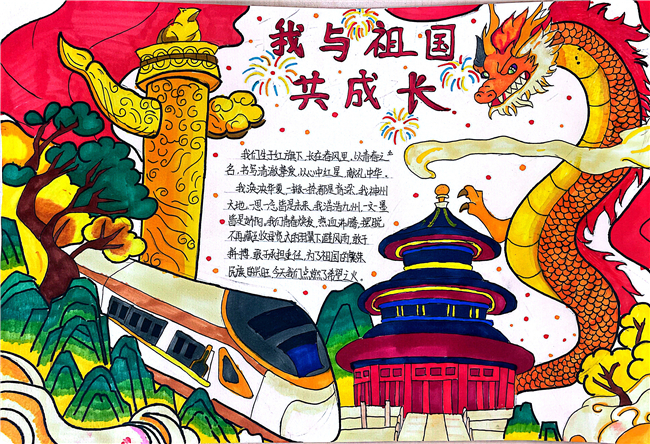 我与祖国
共成长
我们生于红旗下,长在春风里,以青春之
名,书写清澈挚爱,以心中红星,献礼中华。
我泱泱华夏,一撇一捺都是脊梁,我神州
大地,一思一念皆是未来,我浩浩九州,一文一墨
皆是骄阳。我们青春焕发,热血沸腾,摆脱
不再藏于父母宽大的羽翼下避风雨,敢于
拼搏,敢于承担重任,为了祖国的繁荣
民族的兴旺,今天我们点燃了希望之火。